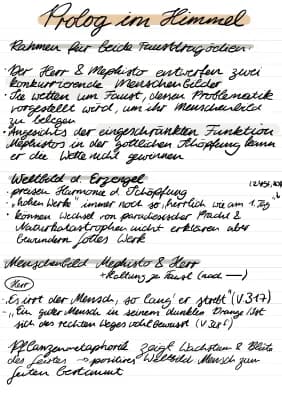 Prolog im Himmel
Rahmen für beide Fausttragödien.
· Der Herr & Mephisto entwerfen zwei
konkurrierende Menschenbilder
· Sie wetten um Faust, dessen Problematik
vorgestellt wird, um ihr Menschenbild
zu belegen
· Angesichts der eingeschränkten Funktion
Mephistos in der göttlichen Schöpfung kann
er die Wette nicht gewinnen
Weltbild d. Erzengel
· preisen Harmonie d. Schöpfung
· „hohen Werke" immer noch so „herrlich wie am 1. Tag
· können Wechsel von paradiesischer Pracht &
Naturkatastrophen nicht erklären aber
bewundern Gottes Werk
Menschenbild Mephisto & Herr
+ Haltung zu Faust (nach —)
Herr
„Es irrt der Mensch, so lang' er strebt" (V.317)
- „Ein guter Mensch in seinem dunklen Drange ist
sich des rechten Weges wohl bewusst (V.328f)
Pflanzenmetaphorik zeigt Wachstum & Blüte
des Geistes → positives Weltbild Mensch zum
Guten bestimmt